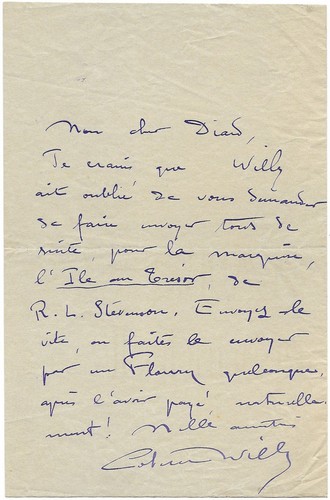 Mon cher Diard,
Je crains que Willy
ait oublié de vous demander
de faire envoyer tous de
suite, pour la marquise,
l'Ile au Trésor, de
R. L. Stevenson. Envoyez-le
vite, ou faites le envoyer
par un Floury quelconque,
après l'avoir payé naturelle-
ment! Mille amitiés
Colette Willy